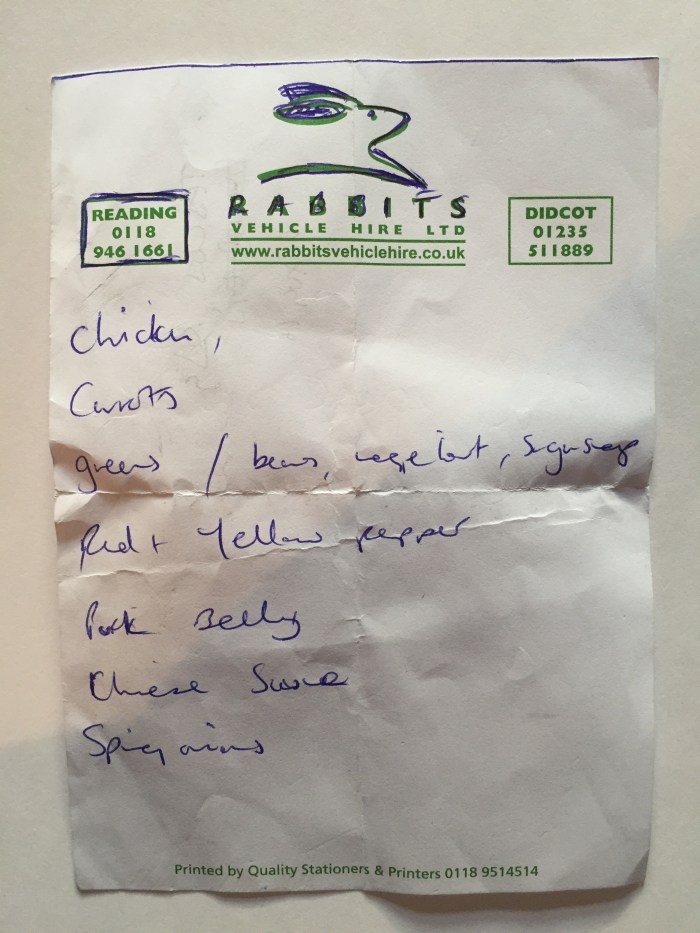 READING
0118
946 1661
RABBITS
VEHICLE HIRE LTD
www.rabbitsvehiclehire.co.uk
DIDCOT
01235
511889
Chicken,
Carrots
greens / beans,
Red + Yellow pepper
Pork Belly
Chinese
Spring onions
Printed by Quality Stationers & Printers 0118 9514514